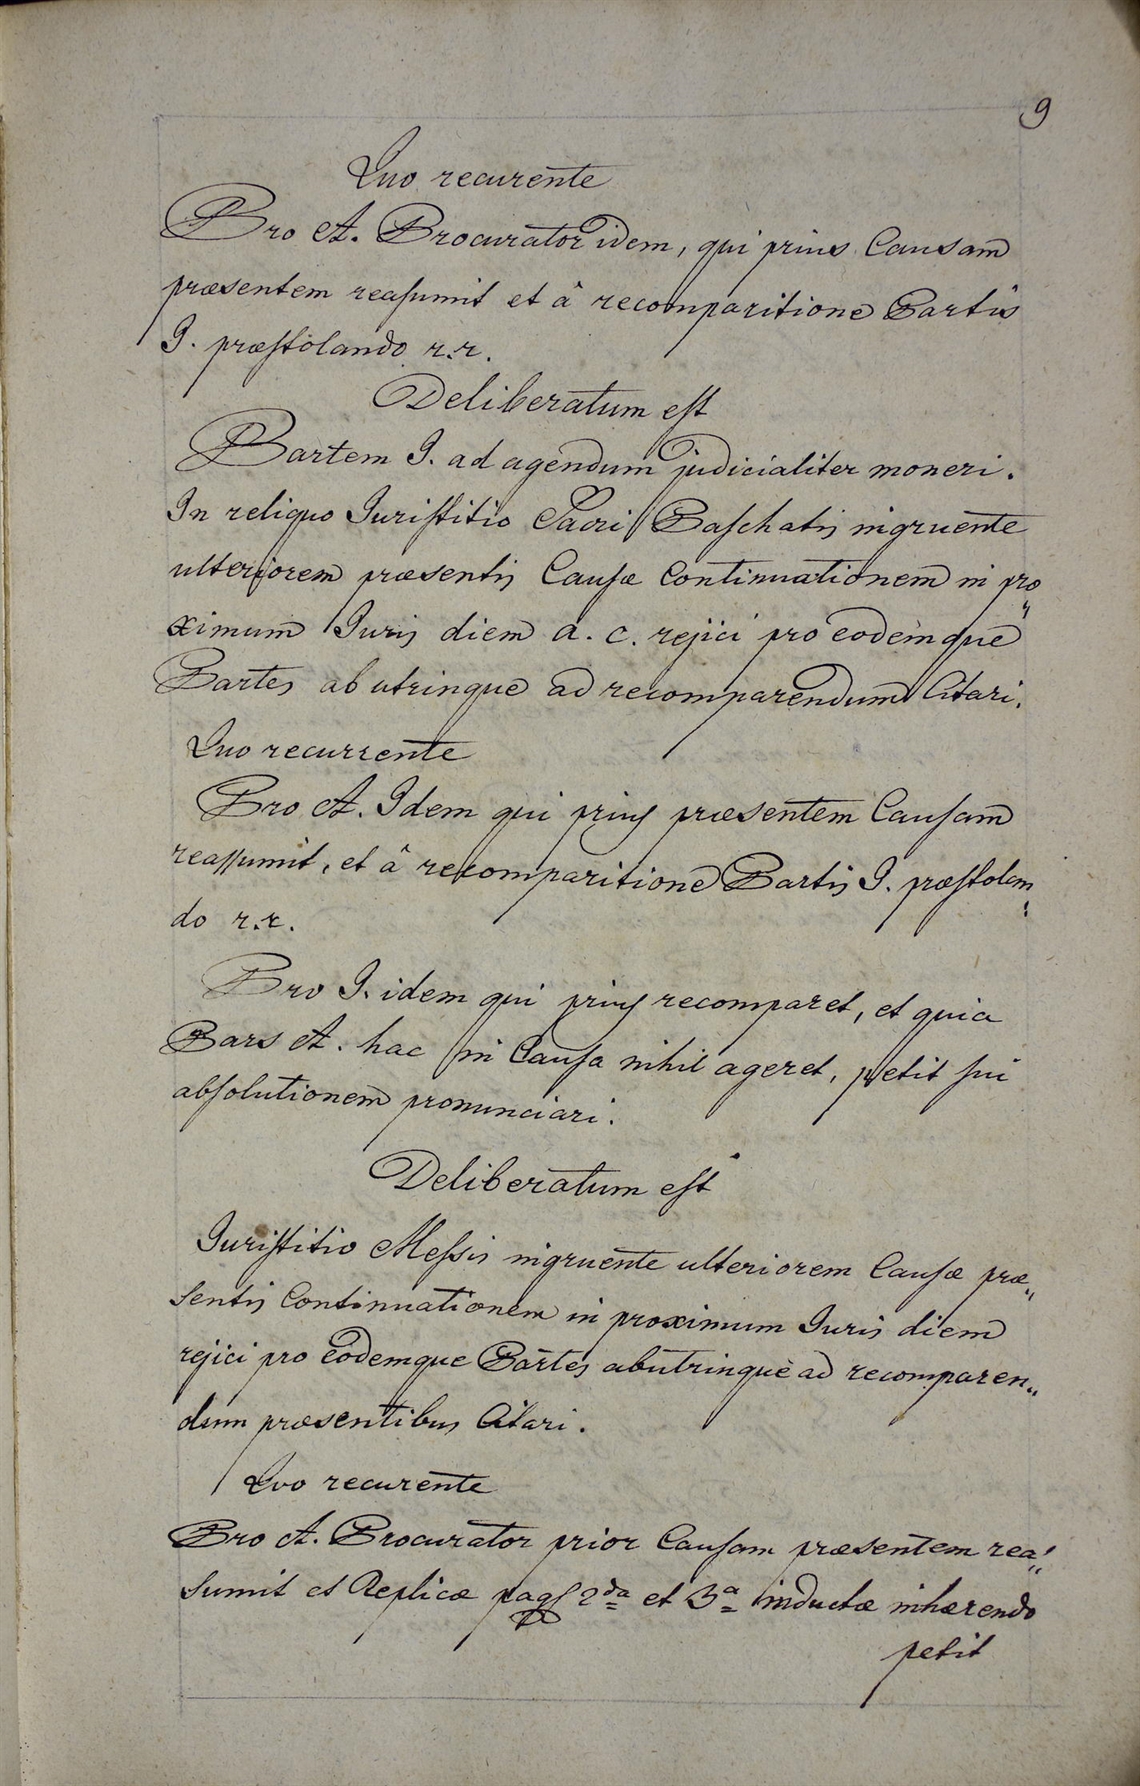 9
Quo recurente
Pro A. Procurator idem, qui prius Causam
præsentem reaſumit et â recomparitione Partis
I. præſtolando r.r.
Deliberatum eſt
Partem I. ad agendum judicialiter moneri.
In reliquo Juriſtitio Sacri Paſchatis ingruente
ulteriorem præsentis Cauſæ Continuationem in pro„
ximum Juris diem a. c. rejici pro eodemque
Partes ab utrinque ad recomparendum Citari.
Quo recurrente
Pro A. Idem qui prius præsentem Cauſam
reaſsumit, et â recomparitione Partis I. præſtolan„
do r.r.
Pro I. idem qui prius recomparet, et quia
Pars A. hac in Cauſa nihil ageret, petit ſui
abſolutionem pronunciari.
Deliberatum eſt
Juriſtitio Meſsis ingruente ulteriorem Cauſæ præ„
sentis Continuationem in proximum Juris diem
rejici pro eodemque Partes abutrinque ad recomparen„
dum præsentibus Citari.
Quo recurente
Pro A. Procurator prior Cauſam præsentem rea„
sumit et Replicæ pag 2da et 3a inductæ inhærendo
petit